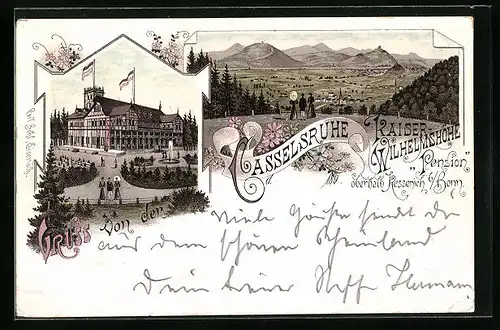 Gruss
Von der
CASSELSRUHE
KAISER
WILHELMSHÖHE
"Pension"
oberhalb Kessenich b/Bonn.
Viele Grüße sendet dir
aus dem schönen Rheinland
Dein treuer Neffe Hermann